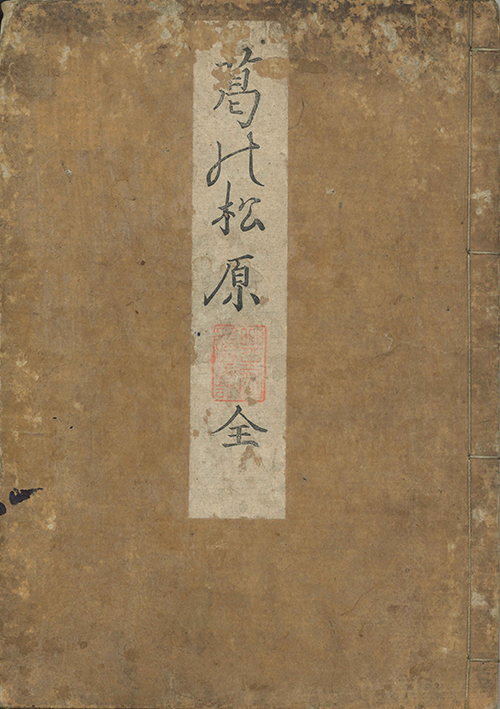 葛の松原
全